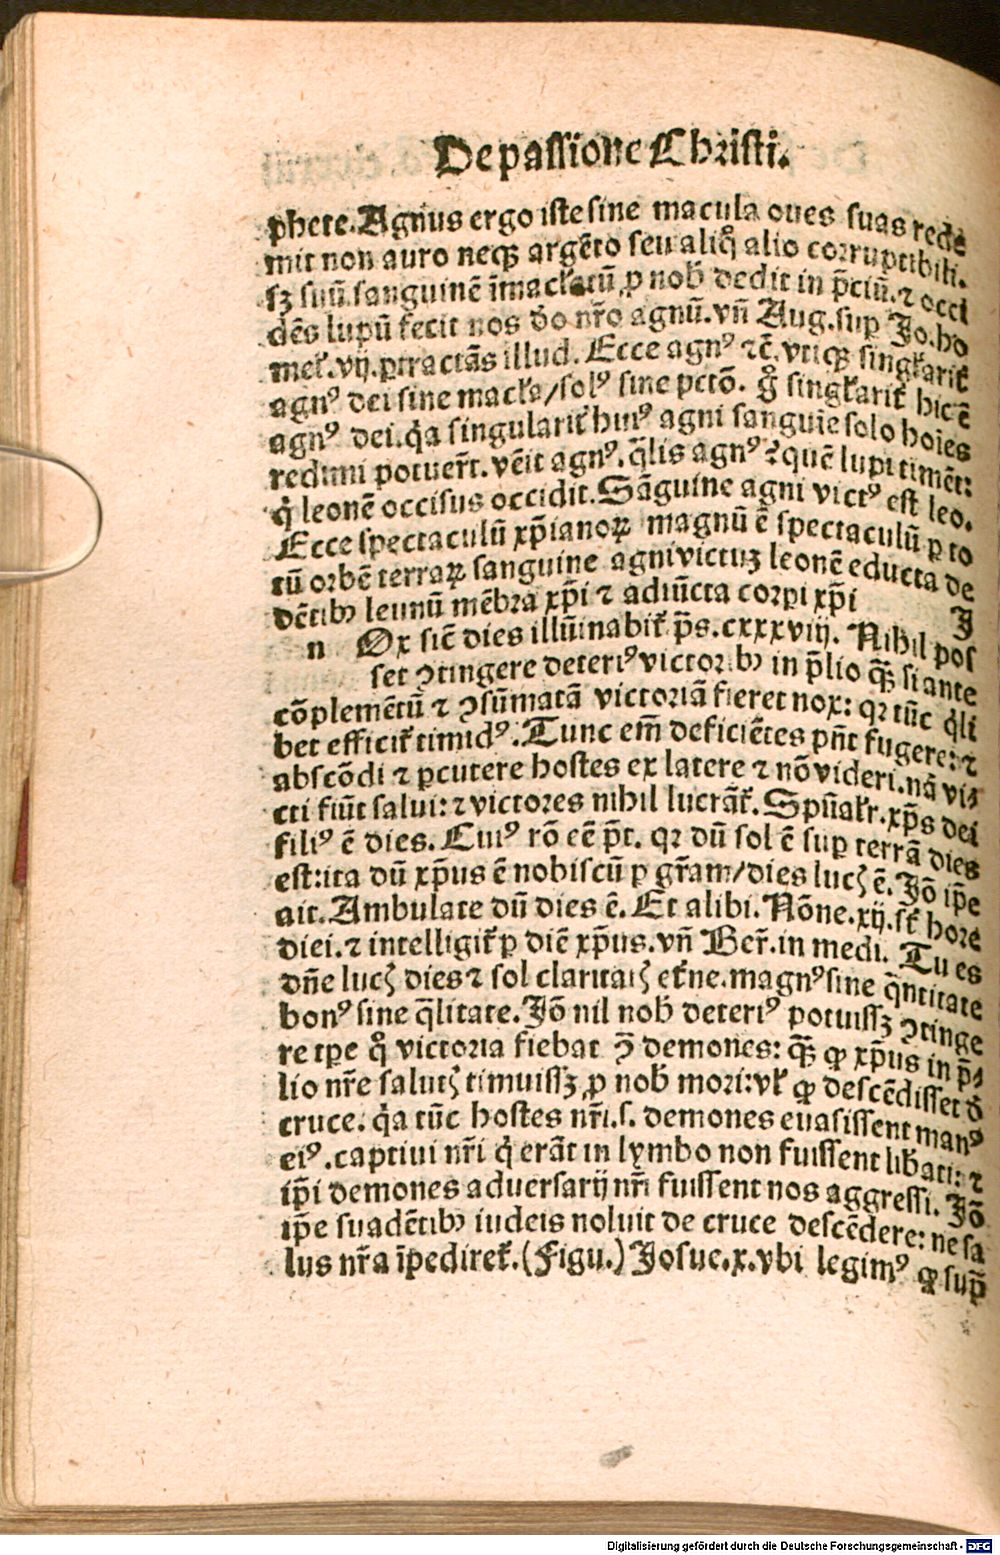 De passione Christi.
phete. Agnus ergo iste sine macula oues suas redē
mit non auro neqꝫ argēto seu aliq̊ alio corruptibili.
sꝫ suū sanguinē īmacĺatū ꝓ nob̄ dedit in p̄ciū. ⁊ occi
dēs lupū fecit nos đo nr̄o agnū. vn̄ Aug. suꝑ Jo. ho
meĺ. vij. ꝑtractās illud. Ecce agnꝰ ⁊c̄. vtiqꝫ singĺarit̉
agnꝰ dei sine macĺa/solꝰ sine pctō. g̊ singĺarit̉ hic ē
agnꝰ dei. q̇a singularit̉ huiꝰ agni sanguīe solo hoīes
redimi potuer̄t. vēit agnꝰ. q̄lis agnꝰ ⁊ quē lupi timēt:
q̇ leonē occisus occidit. Sāguine agni victꝰ est leo.
Ecce spectaculū xp̄ianoꝝ magnū ē spectaculū ꝑ to
tū orbē terraꝝ sanguine agni victuꝫ leonē educta de
dētibꝫ leunū mēbra xp̄i ⁊ adiūcta corpi xp̄i J
n Ox sic̄ dies illūinabit̉ p̄s. cxxxviij. Nihil pos
set ꝯtingere deteriꝰ victoribꝫ in p̄lio q̄ꝫ si ante
cōplemētū ⁊ ꝯsūmatā victoriā fieret nox: qꝛ tūc q̇li
bet efficit̉ timidꝰ. Tunc em̄ deficiētes pn̄t fugere: ⁊
abscōdi ⁊ ꝑcutere hostes ex latere ⁊ nō videri. nā vi-
cti fiūt salui: ⁊ victores nihil lucrāt̉. Spūalr̉. xp̄s dei
filiꝰ ē dies. Cuiꝰ rō eē p̄t. qꝛ dū sol ē suꝑ terrā dies
est: ita dū xp̄us ē nobiscū ꝑ gr̄am/dies lucꝭ ē. Jō ip̄e
ait. Ambulate dū dies ē. Et alibi. Nōne. xij. sť hore
diei. ⁊ intelligit̉ ꝑ diē xp̄us. vn̄ Ber̄. in medi. Tu es
dn̄e lucꝭ dies ⁊ sol claritatꝭ et̉ne. magnꝰ sine q̄ntitate
bonꝰ sine q̄litate. Jō nil nob̄ deteriꝰ potuissꝫ ꝯtinge
re tꝑe q̊ victoria fiebat ꝯ̄ demones: q̄ꝫ ꝙ xp̄us in p̄-
lio nr̄e salutꝭ timuissꝫ ꝓ nob̄ mori: vĺ ꝙ descēdisset đ
cruce. q̇a tūc hostes nr̄i .s. demones euasissent manꝰ
eiꝰ. captiui nr̄i q̇ erāt in lymbo non fuissent lib̉ati: ⁊
ip̄i demones aduersarij nr̄i fuissent nos aggressi. Jō
ip̄e suadētibꝫ iudeis noluit de cruce descēdere: ne sa
lus nr̄a īpediret̉. (Figu.) Josue. x. vbi legimꝰ ꝙ sup̄
Digitalisierung gefördert durch die Deutsche Forschungsgemeinschaft - DFG